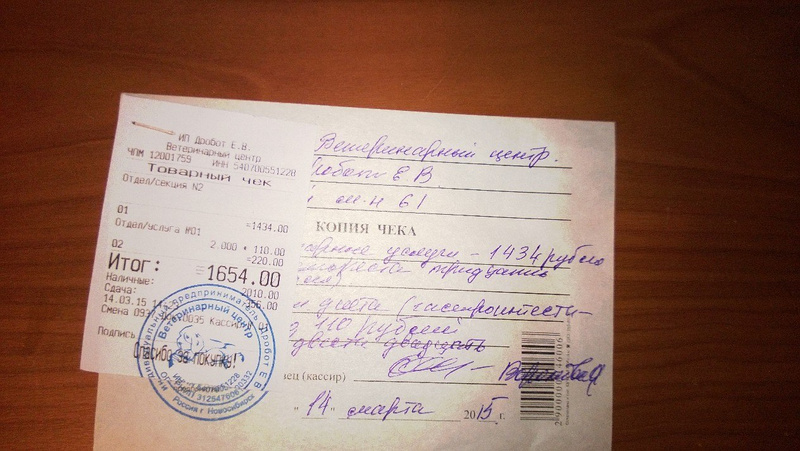 ИП Дробот Е.В.
Ветеринарный центр
ЧПМ 12001759 ИНН 540700551228
Товарный чек
Отдел/секция N2
01
Отдел/услуга №01 =1434.00
02
2.000 * 110.00
=220.00
Итог: =1654.00
Наличные: 2010.00
Сдача: 356.00
14.03.15
Смена 0035 Кассир
Подпись
Спасибо за покупку!
Индивидуальный предприниматель Дробот Е В
Ветеринарный центр
Россия г Новосибирск
Ветеринарный центр.
Е В.
61
КОПИЯ ЧЕКА
услуги - 1434 рубля
тридцать
диета (гастроинтести-
110 рублей
двести двадцать
(кассир)
" 14 " марта 2015 г.